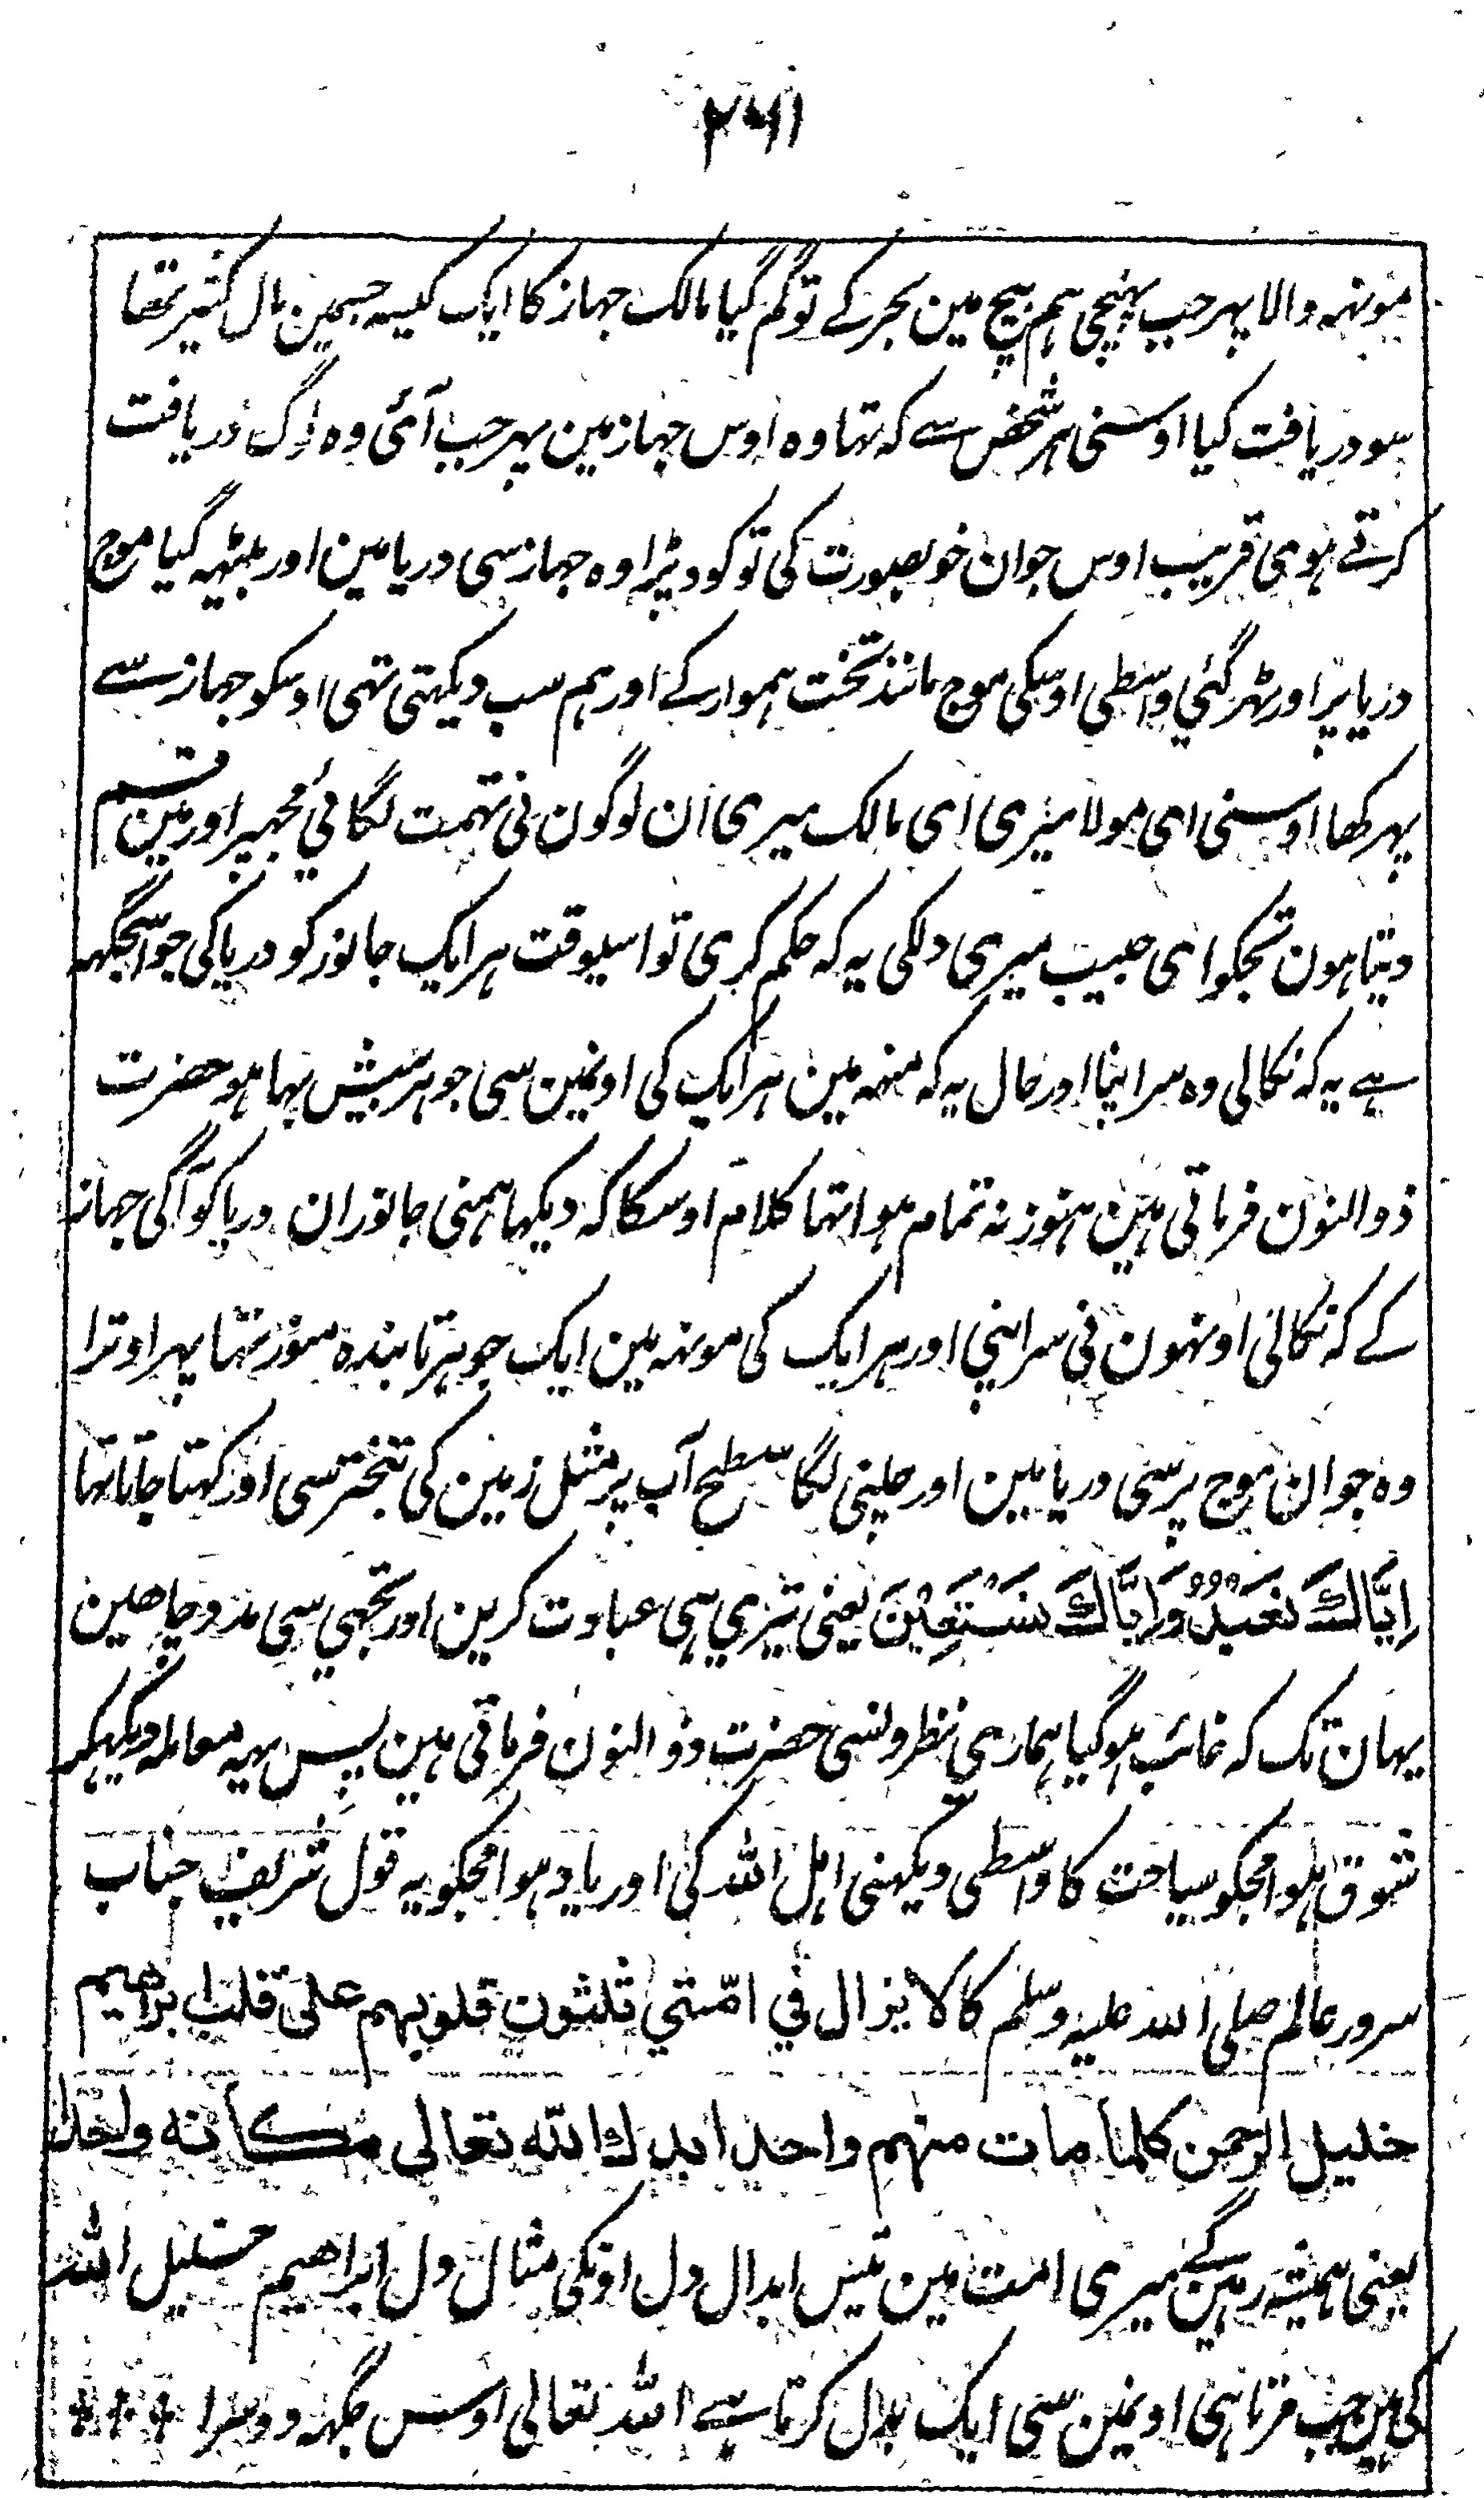 ۲۶۱
مونہہ والا پہر جب پہنچی ہم بیچ مین بحر کے تو گم گیا مالک جہاز کا ایک کیسہ جسمین مال کثیر تھا
سو دریافت کیا اوسنی ہر شخص سے کہ تہا وہ اوس جہاز مین پہر جب آئی وہ لوگ دریافت
کرتے ہوی قریب اوس جوان خوبصورت کی تو کود پڑا وہ جہاز سی دریا مین اور بیٹہہ گیا موج
دریا پر اور ٹہر گئي واسطی اوسکی موج مانند تخت ہموار کے اور ہم سب دیکہتی تہی اوسکو جہاز سے
پہر کھا اوسنی ای مولا میری ای مالک میری ان لوگون نی تہمت لگائي مجہپر اور مین قسم
دیتا ہون تجکو ای حبیب میری دلکی یہ کہ حکم کری تو اسیوقت ہر ایک جانور کو دریا کی جو اسجگہہ
ہے یہ کہ نکالی وہ سر اپنا اور حال یہ کہ منہہ مین ہر ایک کی اونمین سی جوہر بیش بہا ہو حضرت
ذوالنون فرماتی ہین ہنوز نہ تمام ہوا تہا کلام اوسکا کہ دیکہا ہمنی جانوران دریا کو آگی جہاز
کے کہ نکالی اونہون نی سر اپنی اور ہر ایک کی مونہہ مین ایک جوہر تابندہ منور تہا پہر اوترا
وہ جوان موج پر سی دریا مین اور چلنی لگا سطح آب پر مثل زمین کی تبختر سی اور کہتا جاتا تہا
اِیَّاكَ نَعْبُدُ وَاِیَّاكَ نَسْتَعِیْنَ یعنی تیری ہی عبادت کرین اور تجہی سی مدد چاھین
یہان تک کہ غائب ہو گیا ہماری نظرونسی حضرت ذوالنون فرماتی ہین پس یہہ معاملہ دیکہکر
شوق ہوا مجکو سیاحت کا واسطی دیکہنی اہل اللہ کی اور یاد ہوا مجکو یہ قول شریف جناب
سرور عالم صلی اللہ علیہ وسلم کا لا یزال في امّتي ثلثون قلوبهم علی قلب ابراھیم
خلیل الرحمن کلما مات منهم واحد ابدل الله تعالی مکانه واحدا
یعنی ہمیشہ رہین گے میری امت مین تیس ابدال دل اونکی مثال دل ابراھیم خلیل اللہ
کی ہین جب مرتا ہی اونمین سی ایک بدل کرتا ہے اللہ تعالی اوس جگہہ دوسرا